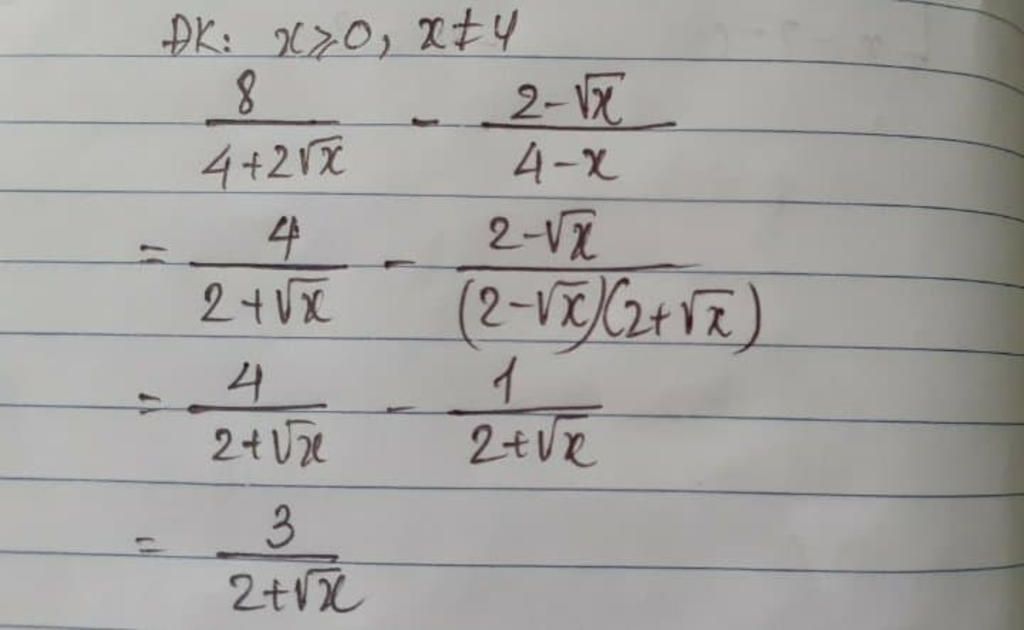 ĐK: x ⩾ 0, x ≠ 4
8/(4+2√x) - (2-√x)/(4-x)
= 4/(2+√x) - (2-√x)/((2-√x)(2+√x))
= 4/(2+√x) - 1/(2+√x)
= 3/(2+√x)